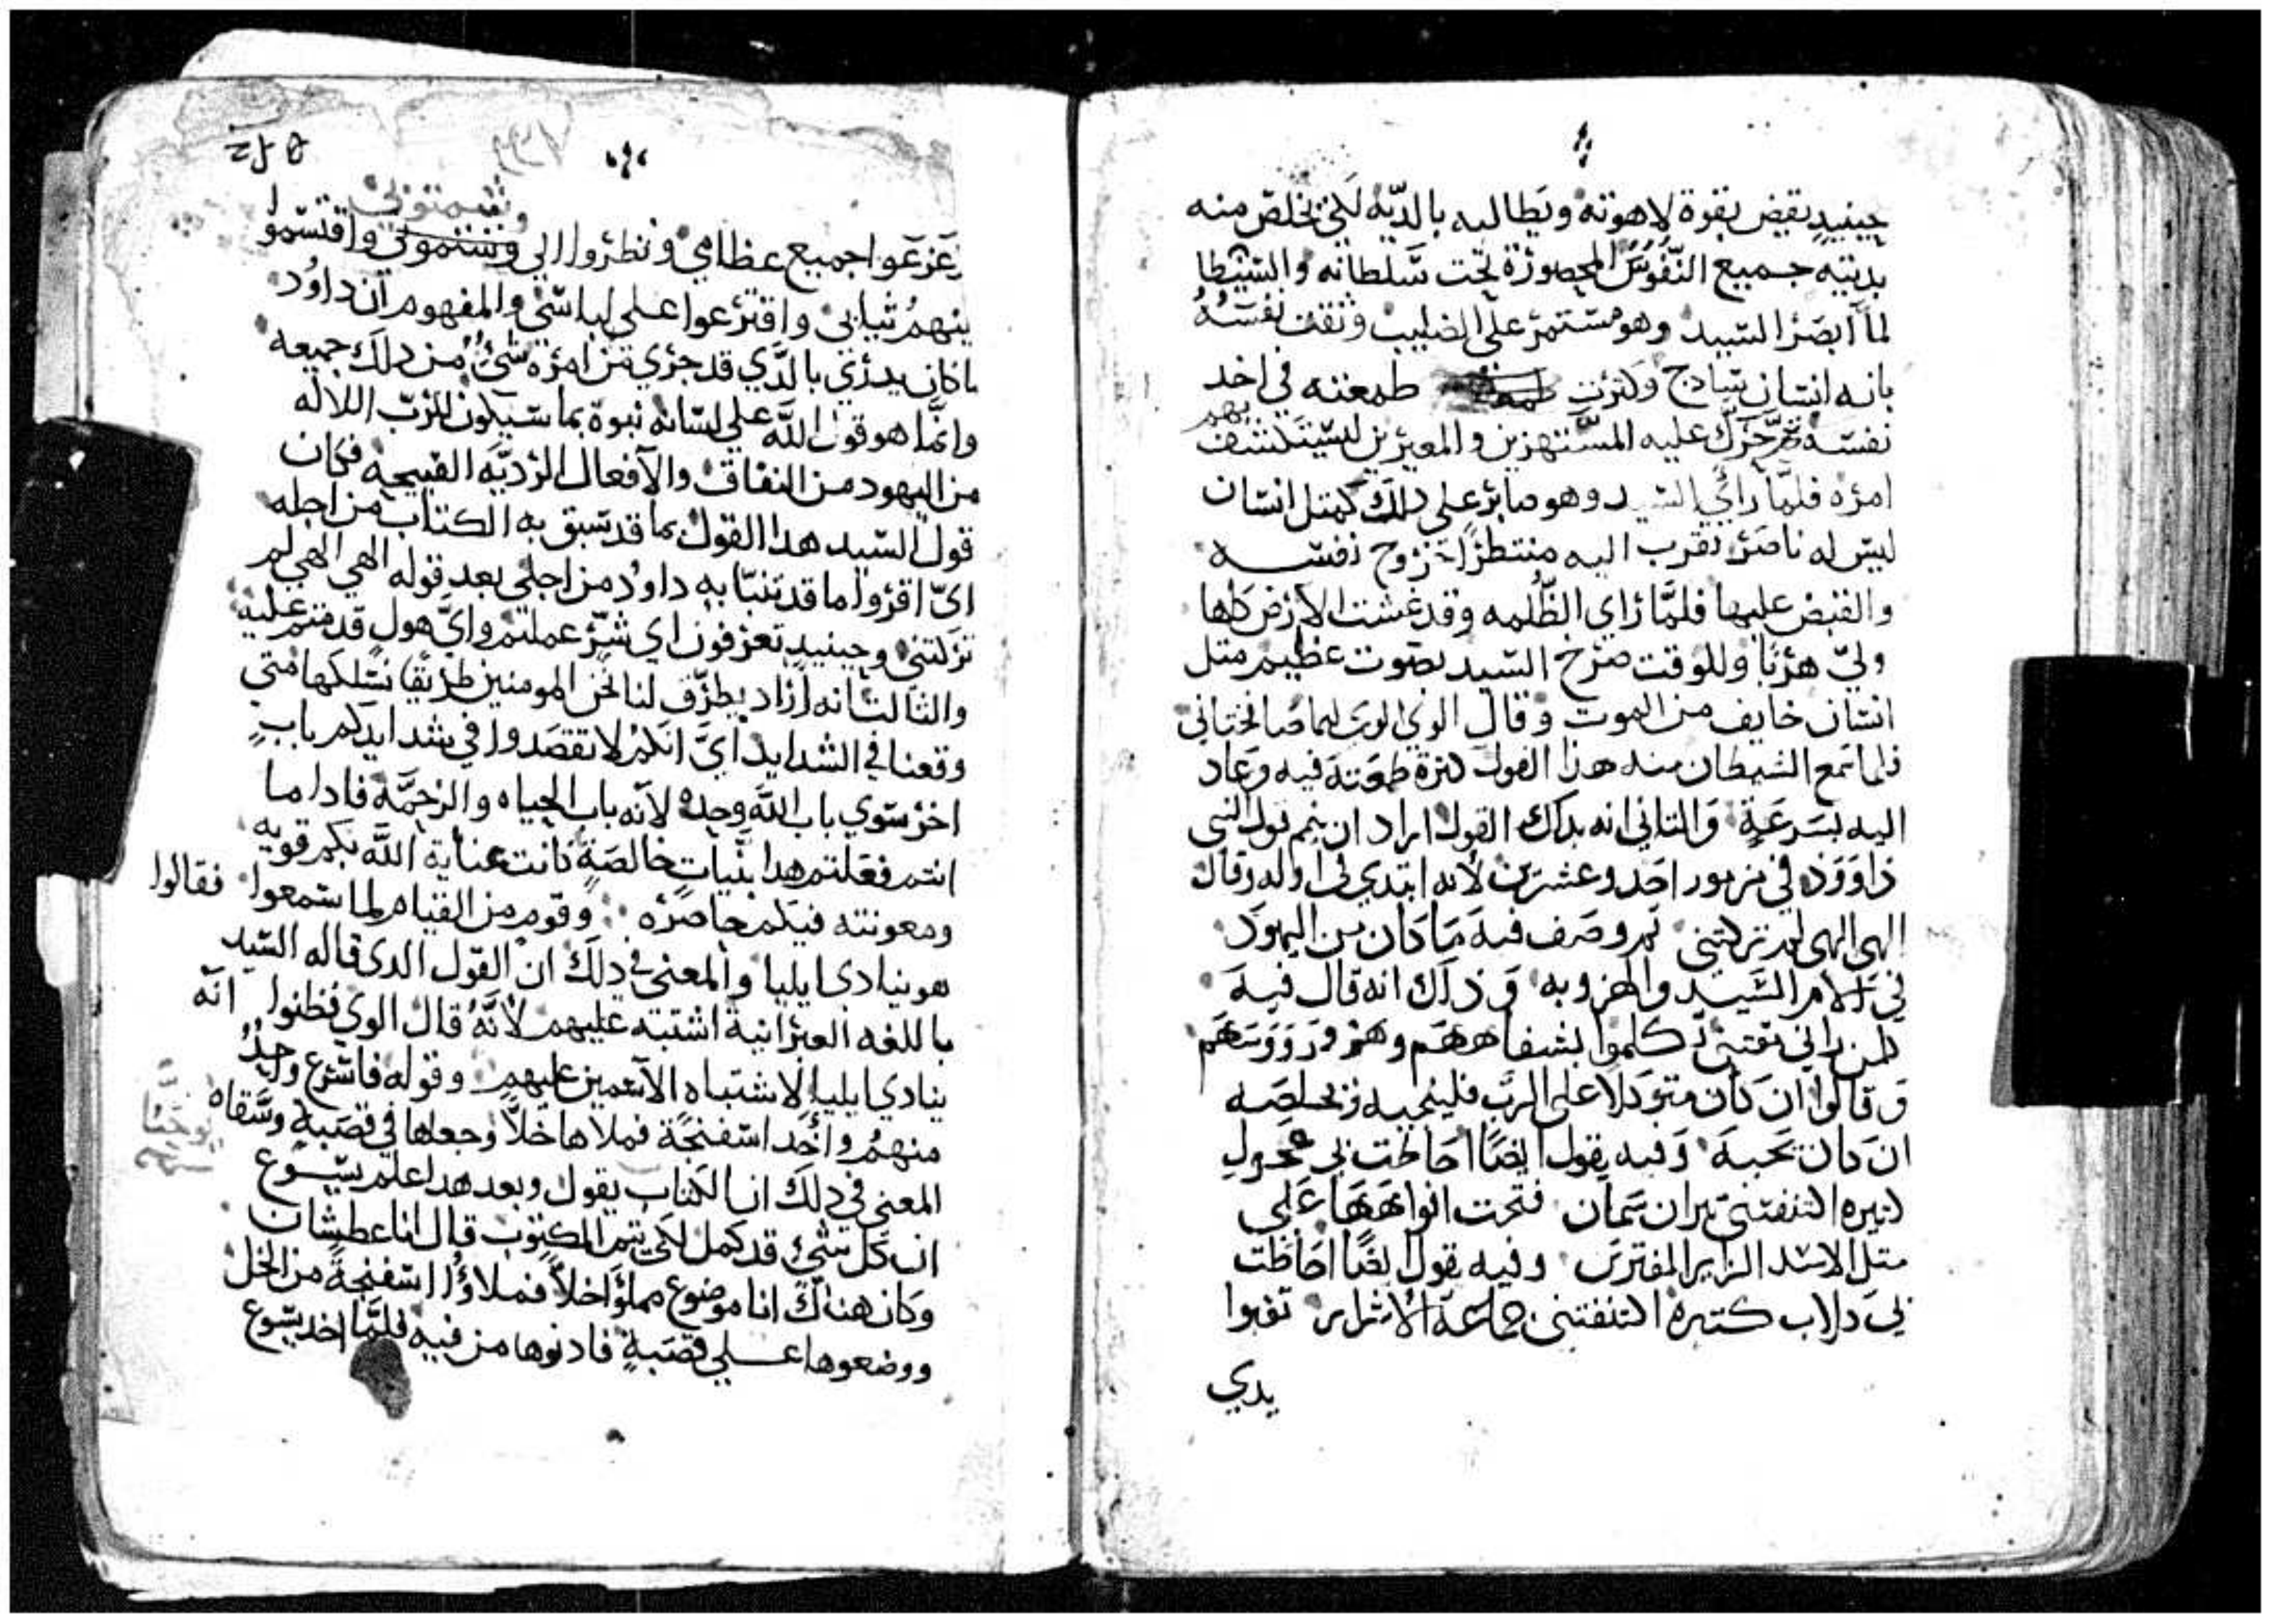 حينيدٍ يقبض بقوة لاهوته ويطالبه بالديّة لكي يخلص منه
بديته جميع النُّفُوس المحصورة تحت سَّلطانه والشيطا
لمّا ابصَر السّيد وهو مسّتمرّ على الصليب وثقت نفسَهُ
بانه انسّان سّادج وكترت طمعته في اخد
نفسّه حَرَّك عليه المسّتهزين والمعيرين ليسّتكشف بهم
امره فلمَّا رأي السّيد وهو صابر على دلك كمتل انسّان
ليسّ له ناصر تقرب اليه منتظرًا تزوح نفسّه
والقبض عليها فلمَّا راي الظُّلمه وقد غشت الارض كلها
وليّ هربًا وللوقت صرخ السّيد بصوت عظيم متل
انسّان خايف من الموت وقال الوي الوي لما صافختاني
فلما سمع الشيطان منه هذا القول كترة طمعته فيه وعاد
اليه بسرعةٍ والتاني انه بداك القول اراد ان يتم قول النبي
داوود في مزمور احد وعشرين لانه ابتدي في اوله وقال
الهي الهي لم تركتني تم وصف فيه ما كان من اليهود
في الام السّيد والهزو به وذلك انه قال فيه
كلمن راني مقتني تكلموا بشفاههم وهزو رووسهم
وقالوا ان كان متوكلا على الرب فلينجيه ويخلصه
ان كان يحبه وفيه يقول ايضًا احاطت بي عجول
كتيره اكتنفتني تيران سمان فتحت افواهها على
متل الاسّد الزاير المفترس وفيه يقول ايضًا احاطت
بي كلاب كتيره اكتنفتني جماعة الاشرار تقبوا
يدي
وشمتوني
زعزعوا جميع عظامي ونظروا الي وشتموني واقتسّموا
بينهمُ تيابي واقترعوا على لباسّي والمفهوم ان داوُد
ما كان يدري بالدّي قد جري من امره شيُّ من دلك جميعه
وانمَّا هو قول اللَّه على لسّانه نبوة بما سّيكون للربّ اللاله
من اليهود من النفاق والافعال الرّديّه القبيحه فكان
قول السّيد هدا القول بما قد سّبق به الكتاب من اجله
ايّ اقرؤا ما قد تنبّا به داوُد من اجلي بعد قوله الهي الهي لم
تركتني وحينيد تعرفون اي شرٍّ عملتم وايّ هولٍ قد متم عليه
والتالت انه اراد يطرّق لنا نحن المومنين طريقًا نسّلكها متي
وقعنا في الشدايد ايّ انكم لا تقصَدوا في شدايدكم بابٍ
اخر سّوي باب اللَّه وحده لانه باب الحياه والرحمَّة فادا ما
انتم فعَلتم هدا بنّيات خالصَةٍ كانت عناية اللَّه بكم قويه
ومعونته فيكم حاصره وقوم من القيام لما سّمعوا فقالوا
هو ينادي ايليا والمعني في دلك ان القول الدي قاله السّيد
باللغه العبرانية اشتبه عليهم لانَّهُ قال الوي فظنوا انّه
ينادي ايليا لاشتباه الآسّمين عليهم وقوله فاسّرع واحدٌ
منهمُ وأخد اسّفنجًة فملاها خلاً وجعلها في قصَبةٍ وسَّقاه
المعني في دلك ان الكتاب يقول وبعد هدا علم يسّوع
ان كل شيءٍ قد كمل لكي يتم المكتوب قال انا عطشان
وكان هناك انا موضوع مملوًا خلاً فملاوُا اسّفنجةً من الخل
ووضعوها على قصَبةٍ فادنوها من فيه فلمَّا اخد يسّوع
يوحَنَّا